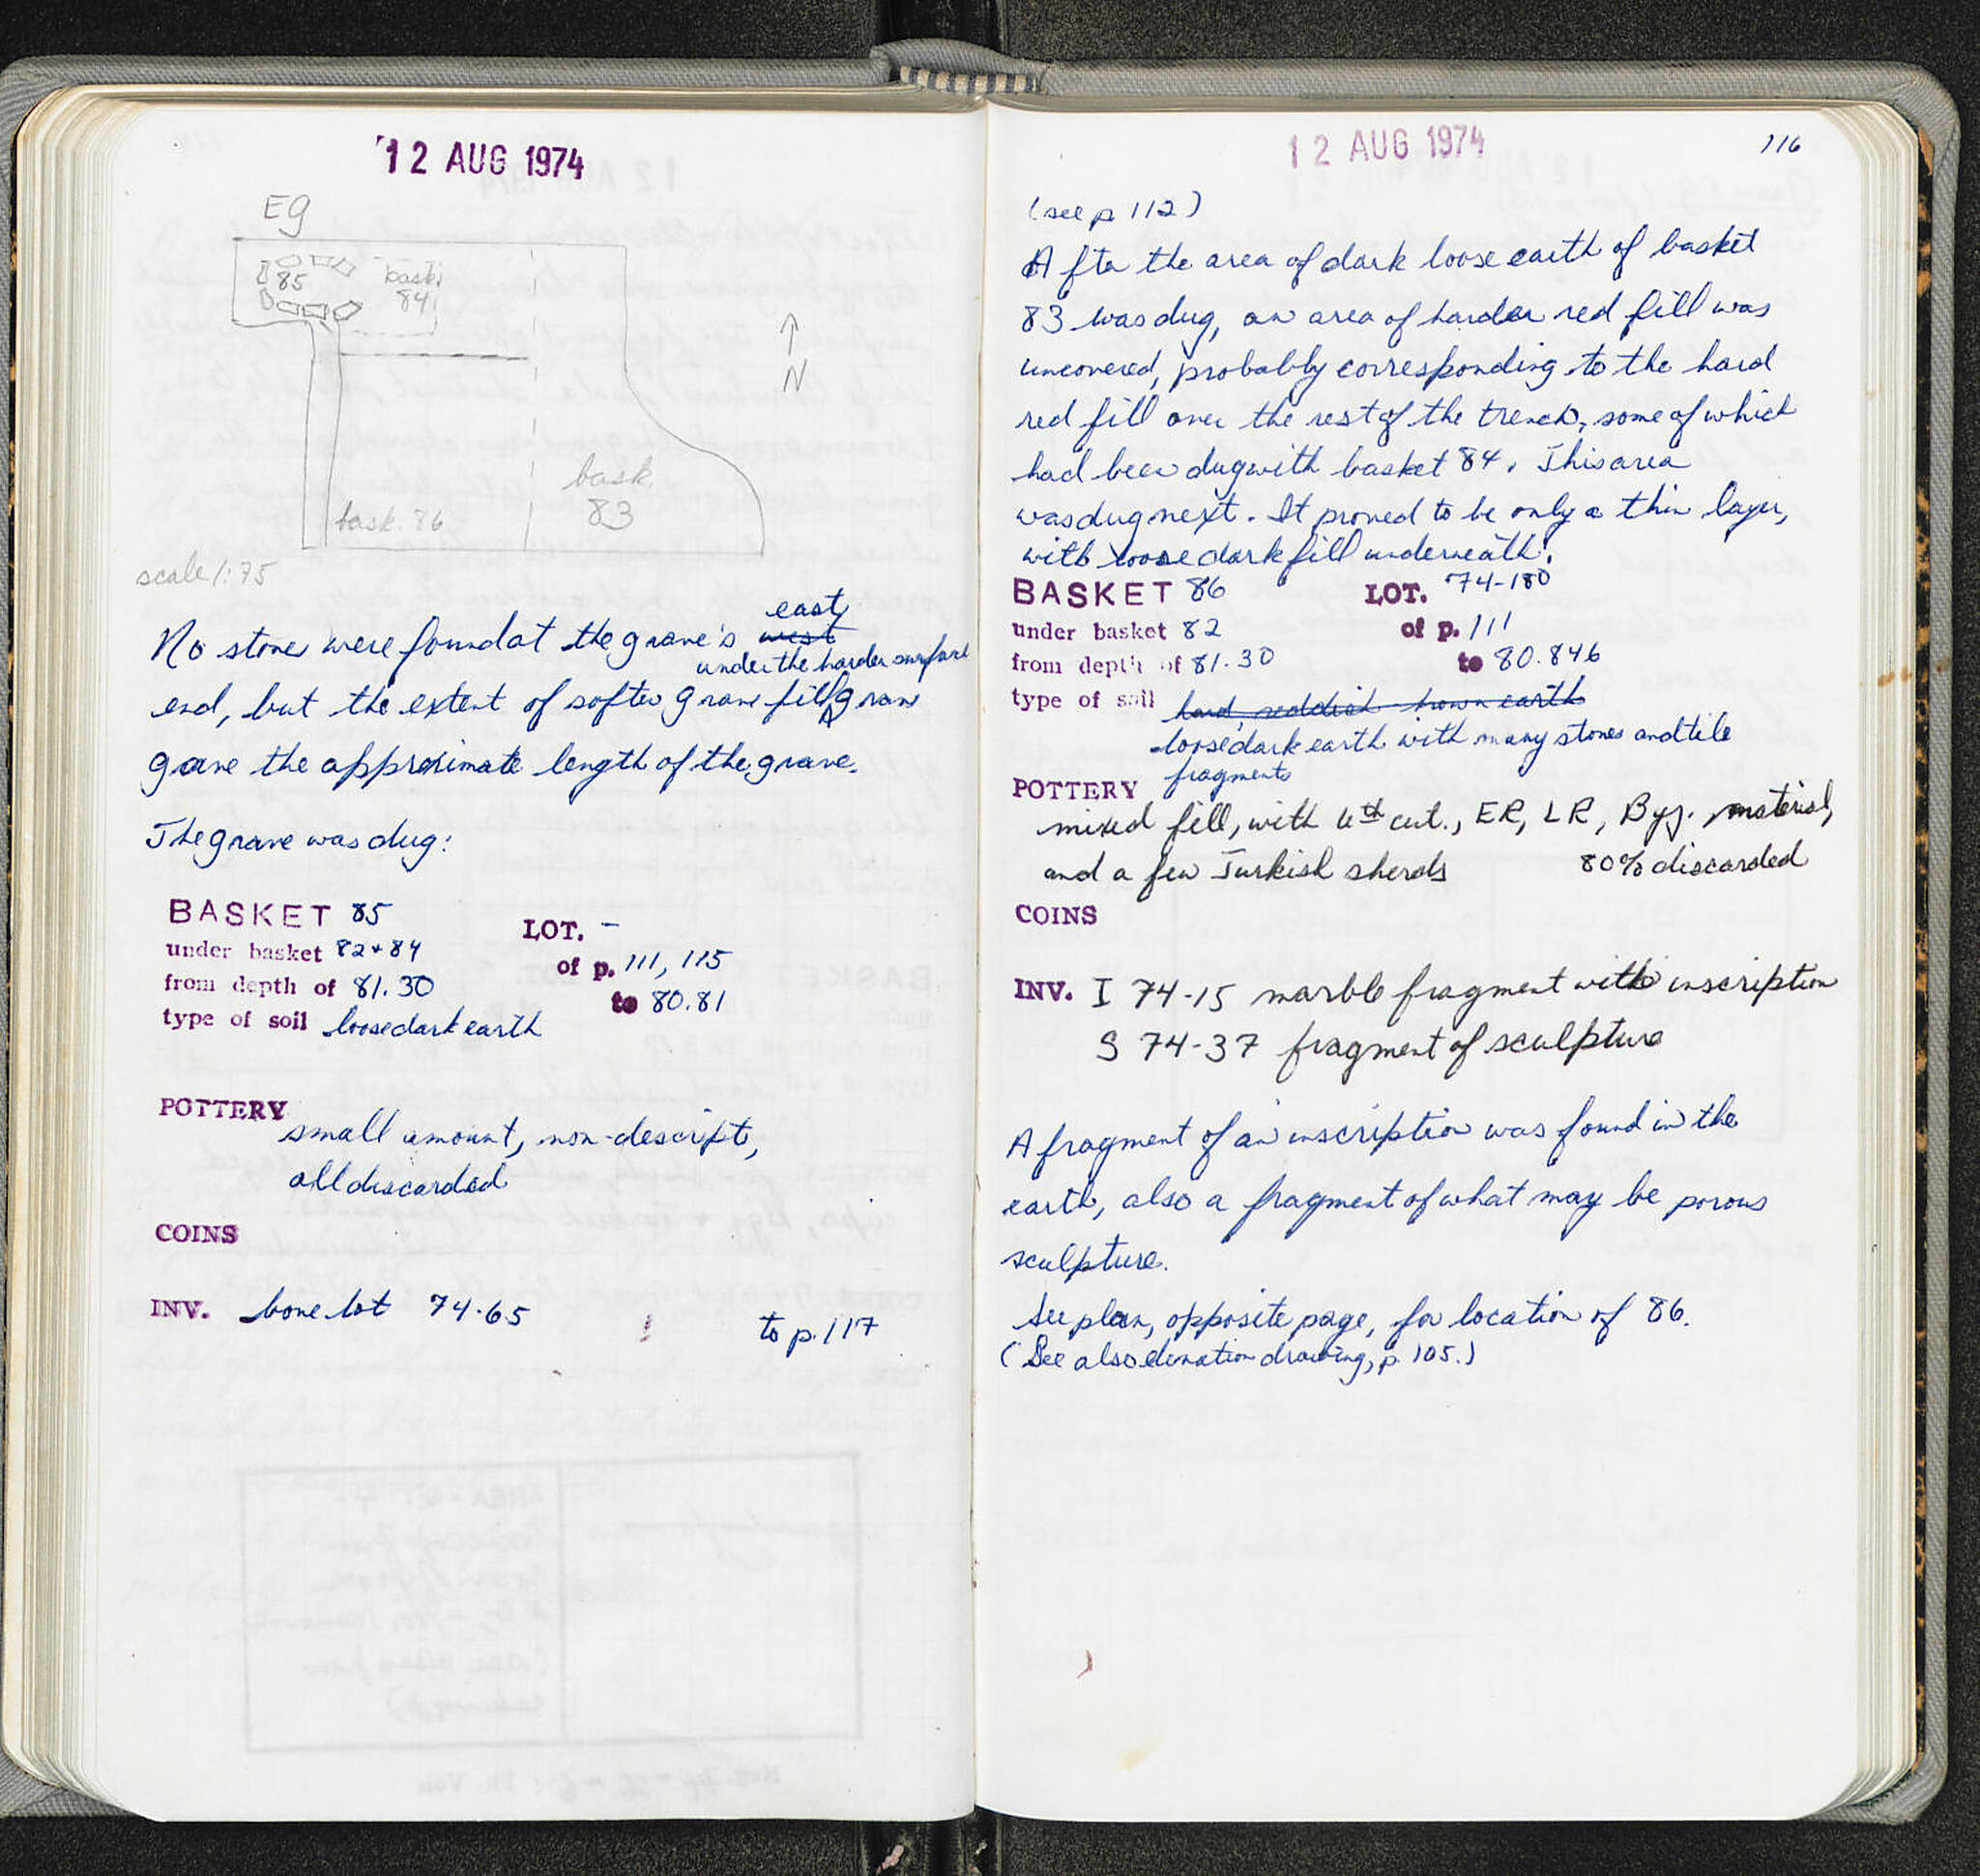 12 AUG 1974
Eg
85
bask.
84
↑
N
bask.
83
bask. 86
scale 1:75
east
No stones were found at the grave's west
under the harder surface
end, but the extent of softer grave fill grave
gave the approximate length of the grave.
The grave was dug:
BASKET 85
LOT. –
under basket 82+84
of p. 111, 115
from depth of 81.30
to 80.81
type of soil loose dark earth
POTTERY
small amount, non-descript,
all discarded
COINS
INV. bone lot 74-65
to p. 117
12 AUG 1974
116
(see p. 112)
After the area of dark loose earth of basket
83 was dug, an area of harder red fill was
uncovered, probably corresponding to the hard
red fill over the rest of the trench, some of which
had been dug with basket 84. This area
was dug next. It proved to be only a thin layer,
with loose dark fill underneath.
BASKET 86
LOT. 74-180
under basket 82
of p. 111
from depth of 81.30
to 80.846
type of soil hard, reddish brown earth
loose dark earth with many stones and tile
fragments
POTTERY
mixed fill, with 4th cent., ER, LR, Byz. material,
and a few Turkish sherds 80% discarded
COINS
INV. I 74-15 marble fragment with inscription
S 74-37 fragment of sculpture
A fragment of an inscription was found in the
earth, also a fragment of what may be porous
sculpture.
See plan, opposite page, for location of 86.
(See also elevation drawing, p. 105.)